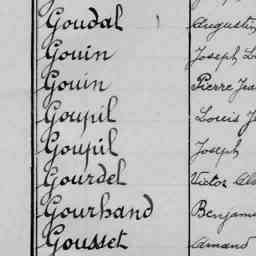 Goudal Augustin
Gouin Joseph
Gouin Pierre
Goupil Louis
Goupil Joseph
Gourdel Victor
Gourhand
Gousset Armand